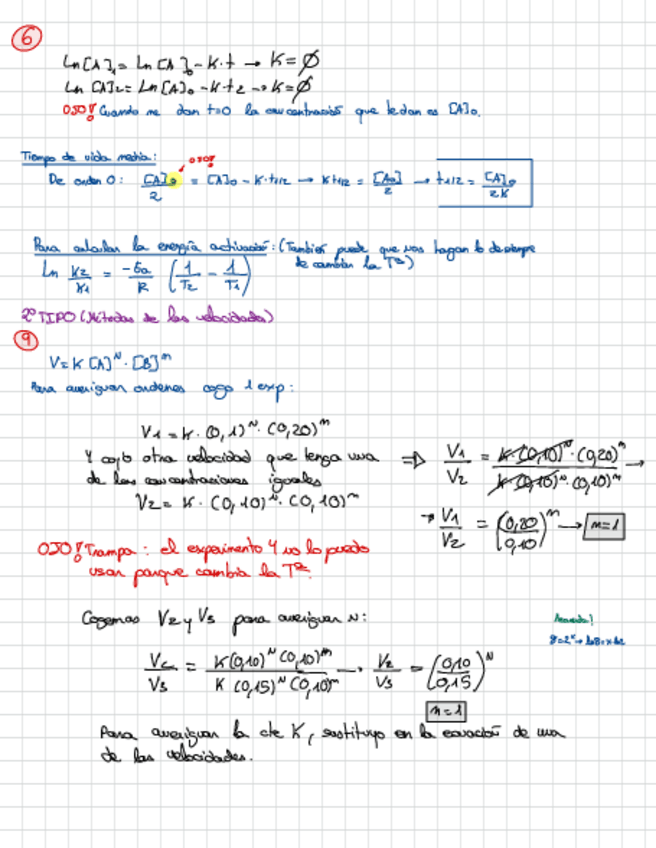 6
Ln[A]₁ = Ln[A]₀ - K·t → K = ∅
Ln[A]₂ = Ln[A]₀ - K t₂ → K = ∅
OJO! Cuando me dan t=0 la concentración que te dan es [A]₀.
Tiempo de vida media:
OJO!
De orden 0: [A]₀/2 = [A]₀ - K·t1/2 → K t1/2 = [A₀]/2 → t1/2 = [A]₀/2K
Para calcular la energía activación: (También puede que nos hagan lo de siempre
de cambiar la Tª)
Ln K₂/K₁ = -Ea/R (1/T₂ - 1/T₁)
2º TIPO (Métodos de las velocidades)
9
V = K [A]ᴺ · [B]ᵐ
Para averiguar ordenes cojo 1 exp:
V₁ = K · (0,1)ᴺ · (0,20)ᵐ
Y cojo otra velocidad que tenga una
de las concentraciones iguales
V₂ = K · (0,10)ᴺ · (0,10)ᵐ
⇒ V₁/V₂ = K·(0,10)ᴺ·(0,20)ᵐ / K·(0,10)ᴺ·(0,10)ᵐ →
→ V₁/V₂ = (0,20/0,10)ᵐ → m=1
OJO! Trampa: el experimento 4 no lo puedo
usar porque cambia la Tª.
Cogemos V₂ y V₃ para averiguar N:
V₂/V₃ = K(0,10)ᴺ(0,10)ᵐ / K(0,15)ᴺ(0,10)ᵐ → V₂/V₃ = (0,10/0,15)ᴺ
n=1
Para averiguar la cte K, sustituyo en la ecuación de una
de las velocidades.